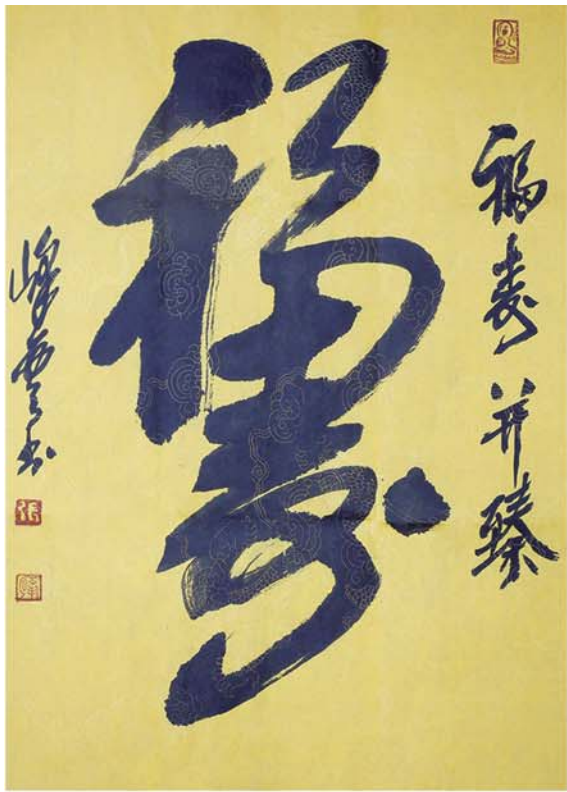 福寿并臻
福寿
峰雲书
张